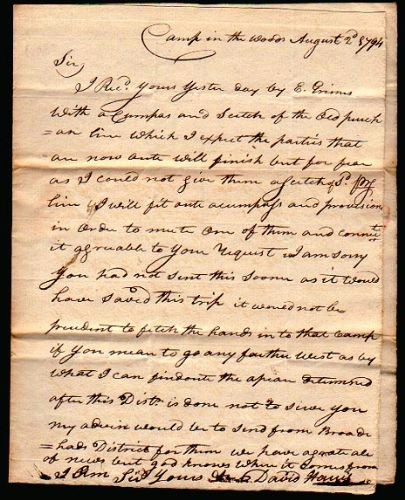 Camp in the Woods August 2d 1794
Sir,
I Recd. yours yester day by E. Grimes
with a Cumpas and Scetch of the Old purch
=as line which I expect the parties that
are now oute will finish but for fear
as I could not give them a Scetch of Sd.
line I will fit oute a cumpass and provision
in Order to mete one of them and connect
it agreable to your Request I am sory
you had not sent this sooner as it would
have saved this trip it would not be
prudent to fetch the hands in to that Camp
if you mean to go any farther West as by
what I can find oute the apear detirmined
after this Dist. is done not to sirve you
my advice would be to send from Broade
=heds District for them we have a grate ale
of news but god knows where it comes from
I Am Sir Yours David